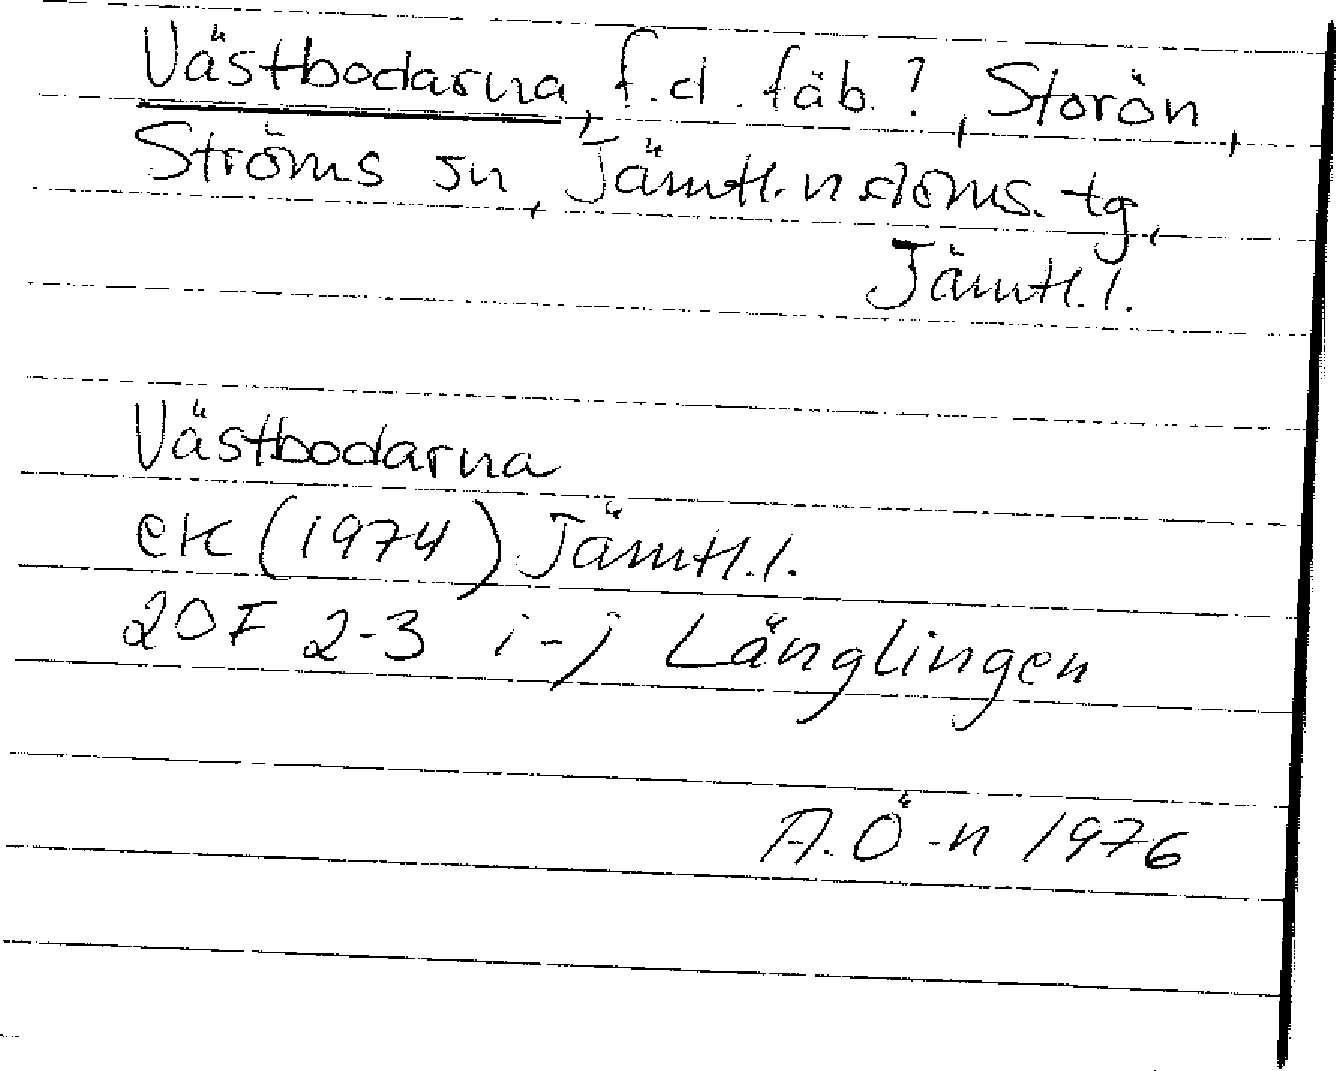 Västbodarna, f.d. fäb.?, Storön,
Ströms sn, Jämtl. n doms. tg,
Jämtl. l.
Västbodarna
ek (1974) Jämtl. l.
20F 2-3 i-j Länglingen
A. Ö-n 1976